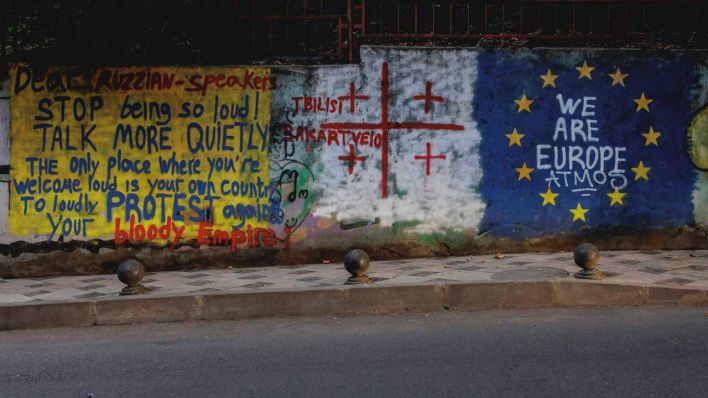 Dear RUZZIAN-SPEAKERS
STOP being so loud!
TALK MORE QUIETLY
THE only place where you're
welcome loud is your own country
To loudly PROTEST against
your bloody Empire
TBILISI
SAKARTVELO
WE
ARE
EUROPE
ATMOS